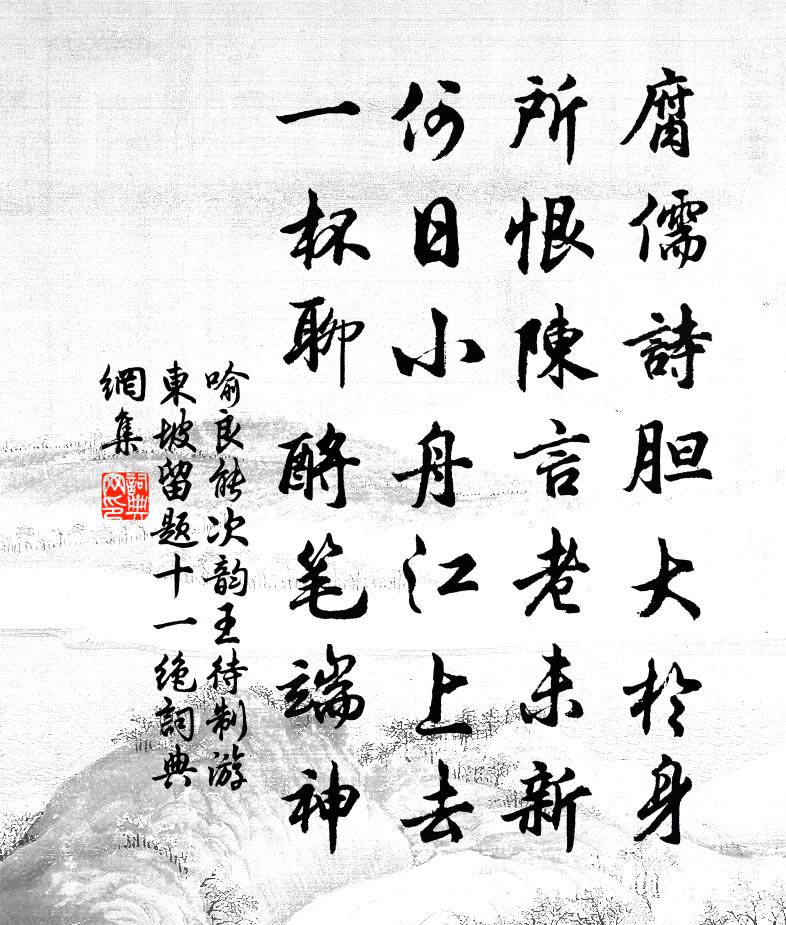 腐儒詩胆大於身
所恨陳言老未新
何日小舟江上去
一杯聊酹笔端神
喻良能次韵王待制游
東坡留題十一绝詞典
網集
詞典
网印